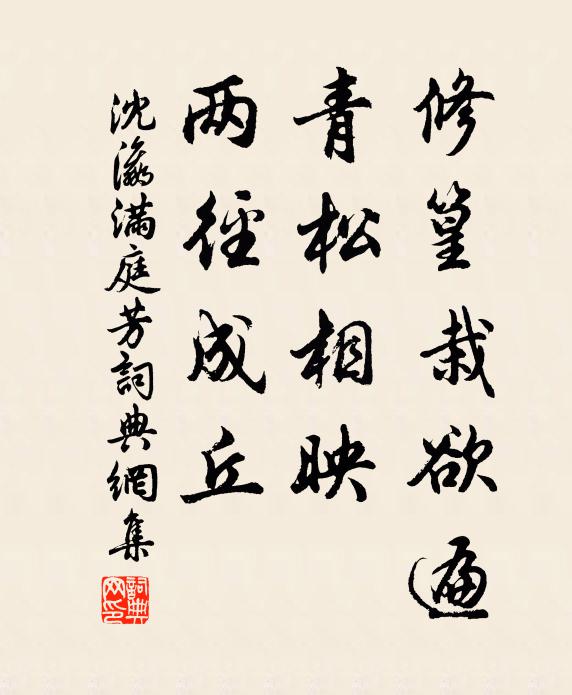 修篁栽欲遍
青松相映
两径成丘
沈瀛满庭芳詞典網集
詞典网印